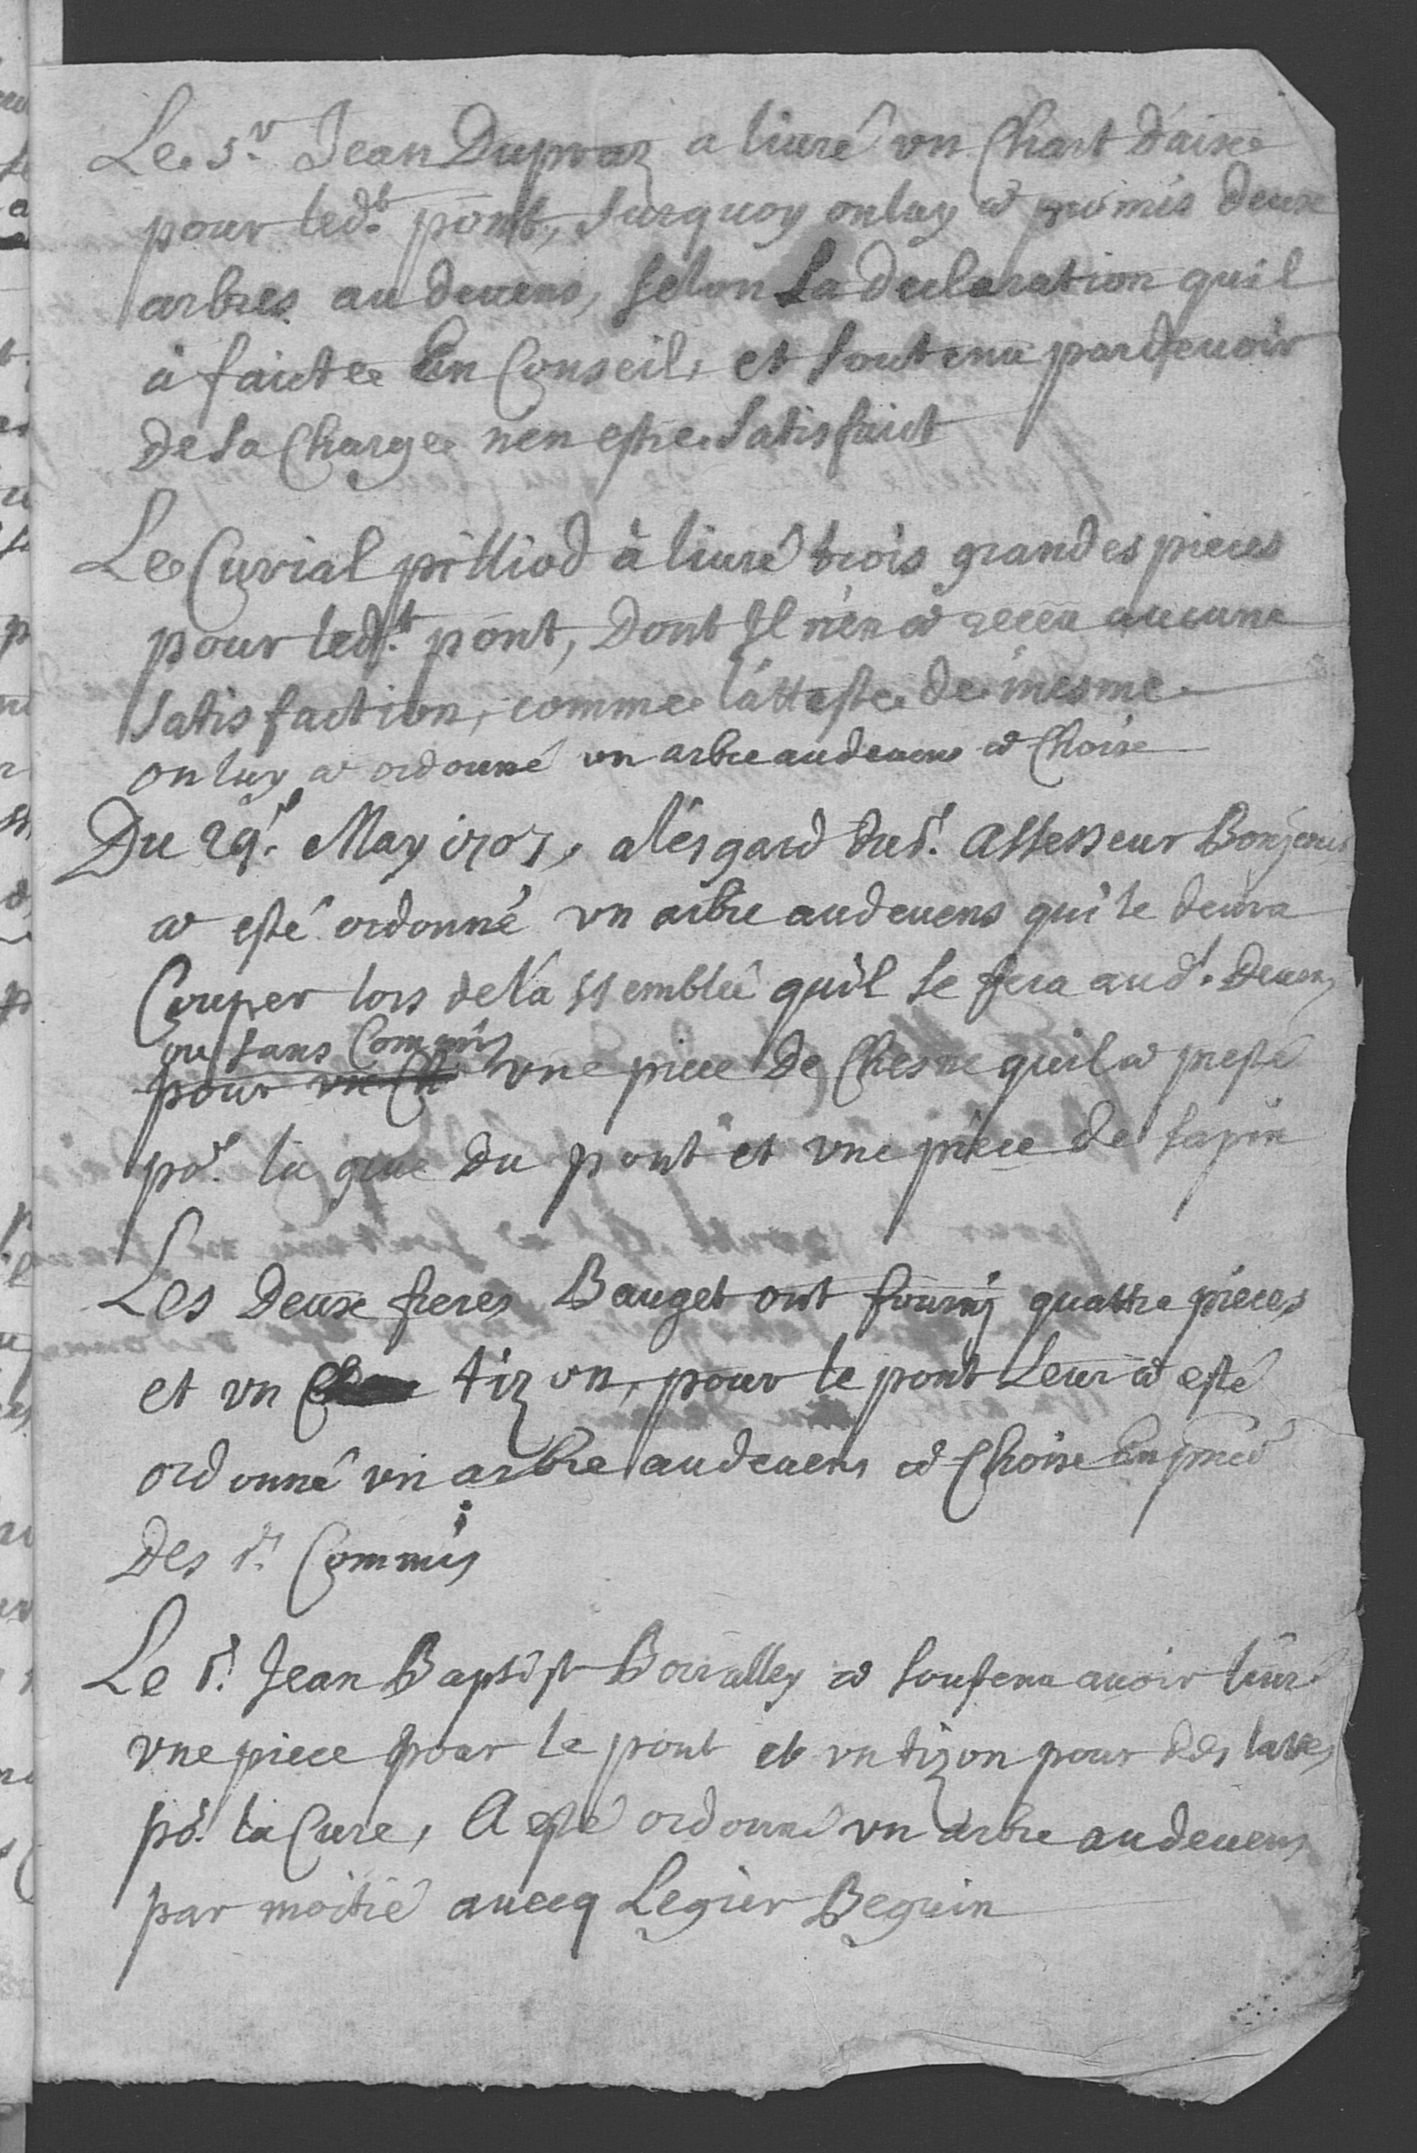 Le Sr. Jean Dupraz a liuré vn Chart daise
pour ledt. pont, surquoy on luy a promis deux
arbres au deuens, selon sa declaration quil
à faicte En Conseil, et soutenu par deuoir
de sa Charge nen estre satisfaict
Le Curial pilliod à liuré trois grandes pieces
pour ledt. pont, Dont Il n'en a receu aucune
satisfaction, comme l'atteste de mesme
on luy a ordonné vn arbre au deuens a Choix
Du 29e. May 1707, a l'esgard du Sr. Assesseur Bonjour
a esté ordonné vn arbre au deuens qui le deura
Couper lors de l'assemblée quil se fera audt. Deuens
ou sans Commis
pour vn Ch vne piece de Chesne quil a presté
por. la grue du pont et vne piece de sapin
Les Deux freres Bauget ont fourny quattre pieces
et vn tizon, pour le pont Leur a esté
ordonné vn arbre au deuens a Choix En
Des Srs. Commis
Le Sr. Jean Baptist a soutenu auoir liuré
vne piece pour le pont et vn tizon pour des lattes
por. la Cure, A esté ordonné vn arbre au deuens
par moitié auecq Legier Beguin